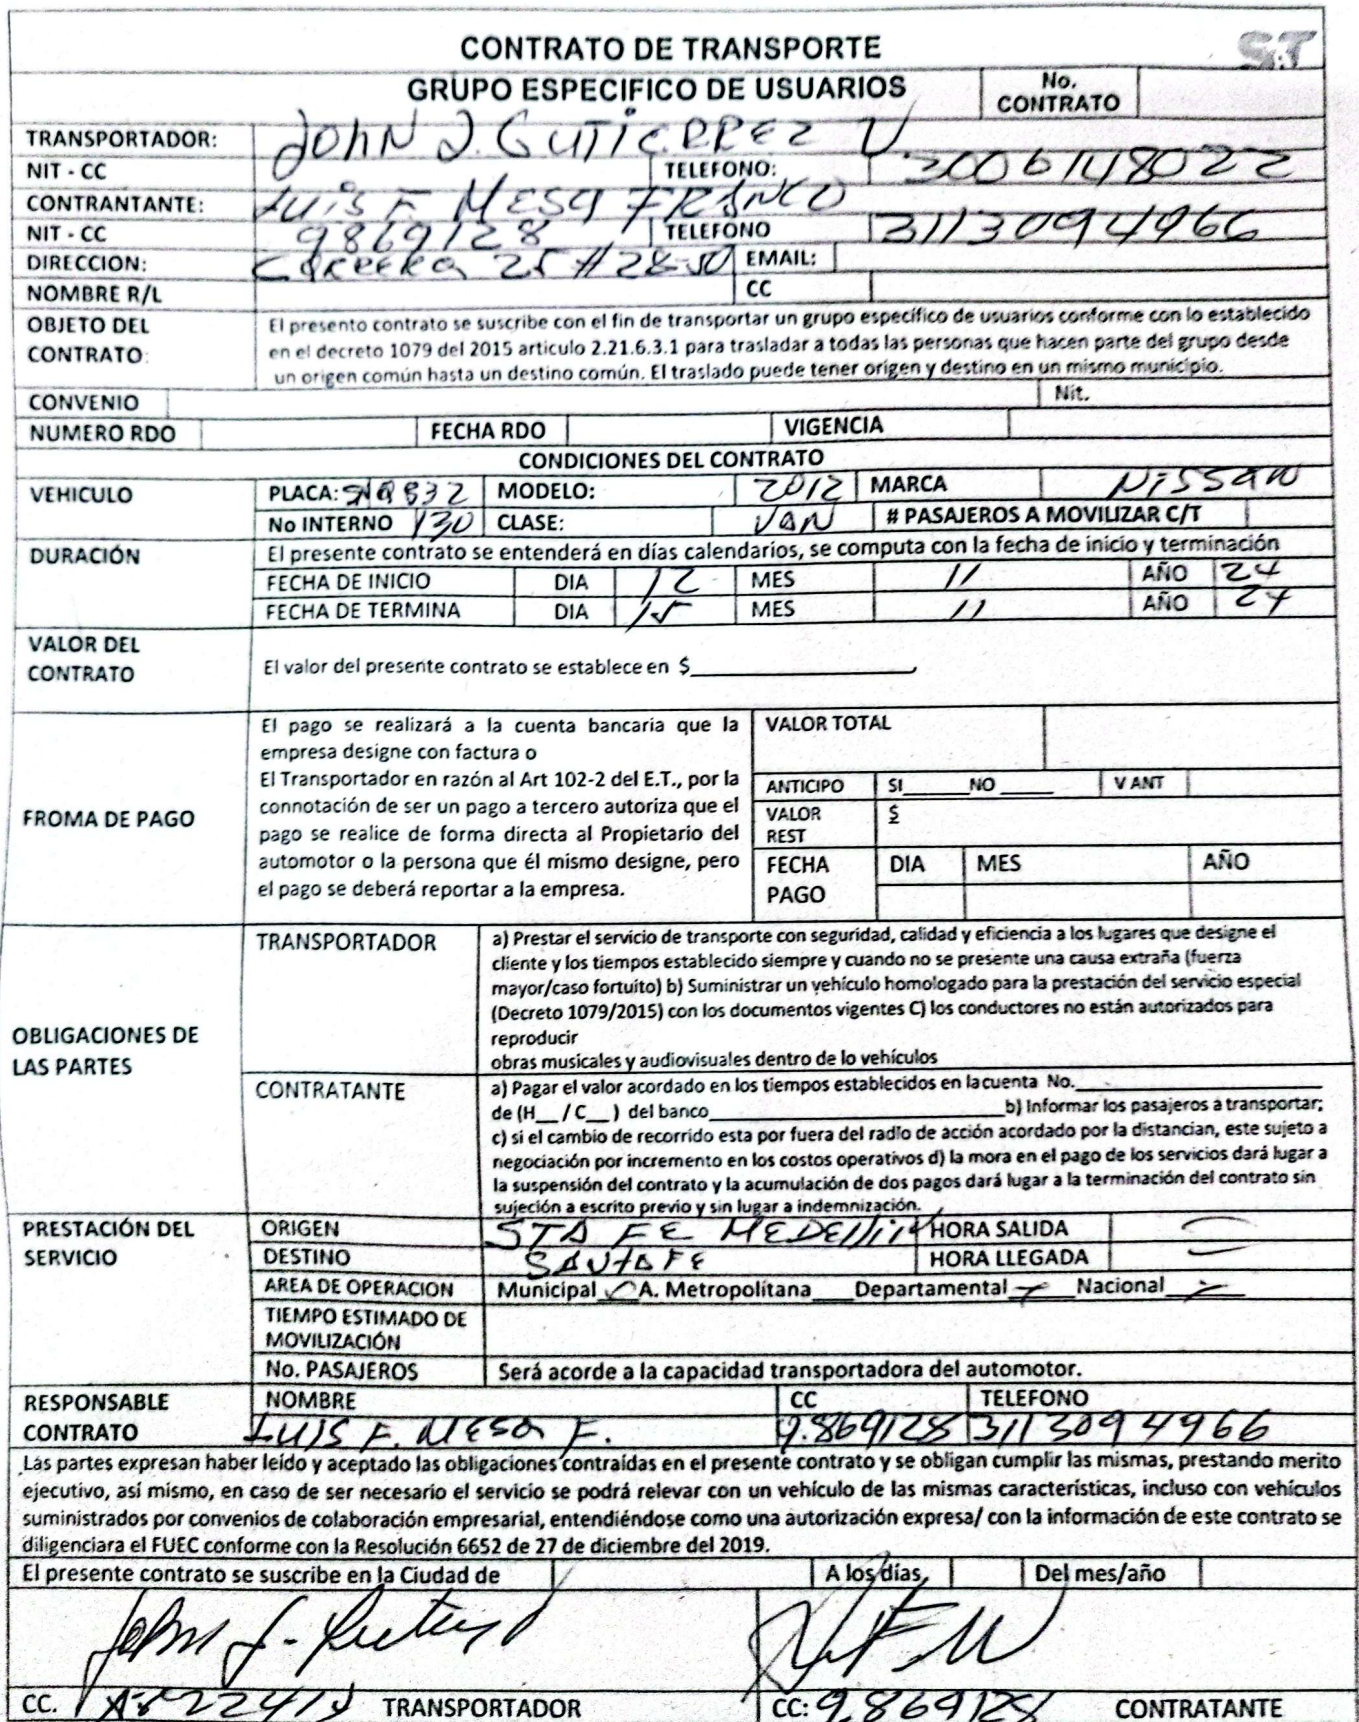 CONTRATO DE TRANSPORTE
S.T
GRUPO ESPECIFICO DE USUARIOS
No. CONTRATO
TRANSPORTADOR: John J. GUTIERREZ V
NIT - CC TELEFONO: 3006148022
CONTRANTANTE: LUIS F. MESA FRANCO
NIT - CC 9869128 TELEFONO 3113094966
DIRECCION: Carrera 25 # 28-50 EMAIL:
NOMBRE R/L CC
OBJETO DEL CONTRATO:
El presento contrato se suscribe con el fin de transportar un grupo específico de usuarios conforme con lo establecido
en el decreto 1079 del 2015 articulo 2.21.6.3.1 para trasladar a todas las personas que hacen parte del grupo desde
un origen común hasta un destino común. El traslado puede tener origen y destino en un mismo municipio.
CONVENIO Nit.
NUMERO RDO FECHA RDO VIGENCIA
CONDICIONES DEL CONTRATO
VEHICULO PLACA: MODELO: 2012 MARCA NiSSAN
No INTERNO 130 CLASE: VAN # PASAJEROS A MOVILIZAR C/T
DURACIÓN El presente contrato se entenderá en días calendarios, se computa con la fecha de inicio y terminación
FECHA DE INICIO DIA 12 MES 11 AÑO 24
FECHA DE TERMINA DIA 15 MES 11 AÑO 24
VALOR DEL CONTRATO
El valor del presente contrato se establece en $
FROMA DE PAGO
El pago se realizará a la cuenta bancaria que la
empresa designe con factura o
El Transportador en razón al Art 102-2 del E.T., por la
connotación de ser un pago a tercero autoriza que el
pago se realice de forma directa al Propietario del
automotor o la persona que él mismo designe, pero
el pago se deberá reportar a la empresa.
VALOR TOTAL
ANTICIPO SI NO V ANT
VALOR REST $
FECHA PAGO DIA MES AÑO
OBLIGACIONES DE LAS PARTES
TRANSPORTADOR
a) Prestar el servicio de transporte con seguridad, calidad y eficiencia a los lugares que designe el
cliente y los tiempos establecido siempre y cuando no se presente una causa extraña (fuerza
mayor/caso fortuito) b) Suministrar un vehículo homologado para la prestación del servicio especial
(Decreto 1079/2015) con los documentos vigentes C) los conductores no están autorizados para
reproducir
obras musicales y audiovisuales dentro de lo vehículos
CONTRATANTE
a) Pagar el valor acordado en los tiempos establecidos en lacuenta No.
de (H__ / C__ ) del banco b) Informar los pasajeros a transportar;
c) si el cambio de recorrido esta por fuera del radio de acción acordado por la distancian, este sujeto a
negociación por incremento en los costos operativos d) la mora en el pago de los servicios dará lugar a
la suspensión del contrato y la acumulación de dos pagos dará lugar a la terminación del contrato sin
sujeción a escrito previo y sin lugar a indemnización.
PRESTACIÓN DEL SERVICIO
ORIGEN STA FE MEDEllin HORA SALIDA
DESTINO SANTA FE HORA LLEGADA
AREA DE OPERACION Municipal A. Metropolitana Departamental Nacional
TIEMPO ESTIMADO DE
MOVILIZACIÓN
No. PASAJEROS Será acorde a la capacidad transportadora del automotor.
RESPONSABLE CONTRATO
NOMBRE CC TELEFONO
LUIS F. MESA F. 9.869128 3113094966
Las partes expresan haber leído y aceptado las obligaciones contraídas en el presente contrato y se obligan cumplir las mismas, prestando merito
ejecutivo, así mismo, en caso de ser necesario el servicio se podrá relevar con un vehículo de las mismas características, incluso con vehículos
suministrados por convenios de colaboración empresarial, entendiéndose como una autorización expresa/ con la información de este contrato se
diligenciara el FUEC conforme con la Resolución 6652 de 27 de diciembre del 2019.
El presente contrato se suscribe en la Ciudad de A los días, Del mes/año
CC. TRANSPORTADOR CC: 9.869128 CONTRATANTE